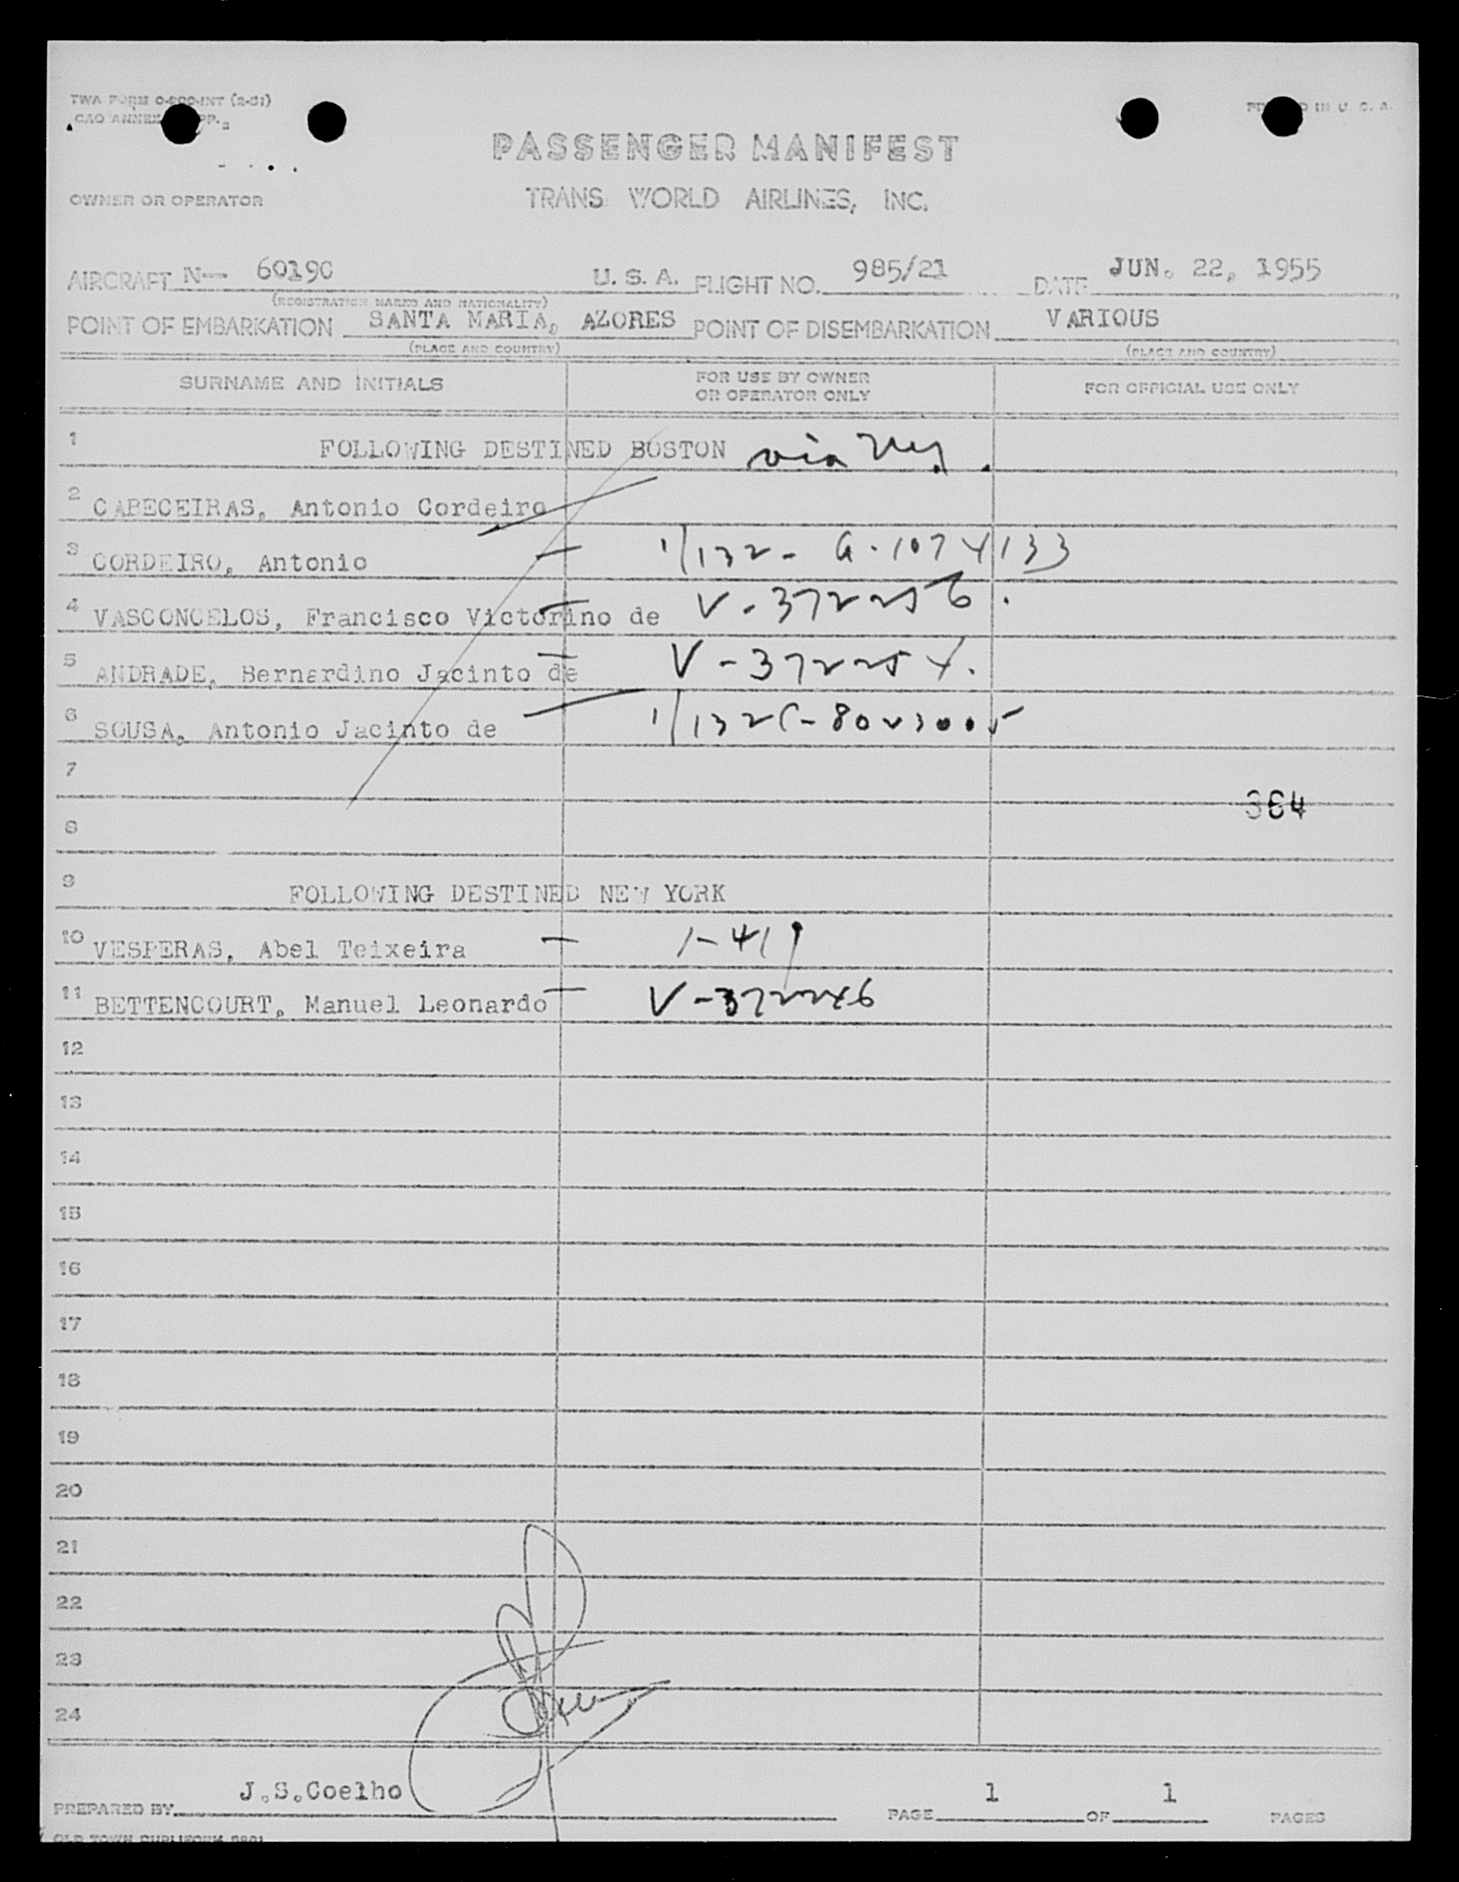 TWA FORM
PASSENGER MANIFEST
OWNER OR OPERATOR
TRANS WORLD AIRLINES, INC.
AIRCRAFT N-- 6019C U. S. A. FLIGHT NO. 985/21 DATE JUN. 22, 1955
(REGISTRATION MARKS AND NATIONALITY)
POINT OF EMBARKATION SANTA MARIA, AZORES POINT OF DISEMBARKATION VARIOUS
(PLACE AND COUNTRY) (PLACE AND COUNTRY)
SURNAME AND INITIALS FOR USE BY OWNER OR OPERATOR ONLY FOR OFFICIAL USE ONLY
1 FOLLOWING DESTINED BOSTON via
2 CABECEIRAS, Antonio Cordeiro
3 CORDEIRO, Antonio
4 VASCONCELOS, Francisco Victorino de V-372256.
5 ANDRADE, Bernardino Jacinto de
6 SOUSA, Antonio Jacinto de
7
364
8
9 FOLLOWING DESTINED NEW YORK
10 VESPERAS, Abel Teixeira 1-419
11 BETTENCOURT, Manuel Leonardo
12
13
14
15
16
17
18
19
20
21
22
23
24
PREPARED BY J.S.Coelho PAGE 1 OF 1 PAGES